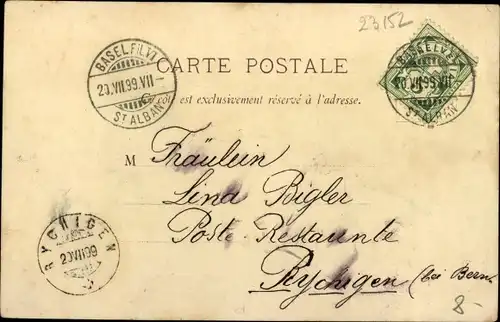 23/152
BASEL FIL. VI
20.VII.99.VII-
ST ALBAN
CARTE POSTALE
Ce côté est exclusivement réservé à l'adresse.
M Fräulein
Lina Bigler
Poste Restaunte
Rychigen (bei Bern
RYCHIGEN
20 VII 99
8-